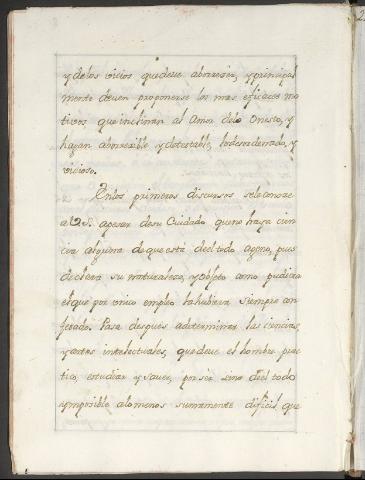 y de los vicios que deve aborreser, y principal
mente deven proponerse los mas eficaces mo
tivos, que inclinan al Amor delo Onesto, y
hagan aborrecible y detestable, lo desordenado, y
vicioso.
En los primeros discursos se le conoce
a V.S. apesar de su Cuidado que no haya cien
cia alguna de que està del todo ageno, pues
declara su naturaleza, y objeto como pudiera
el que por unico empleo la hubiera siempre con
fesado. Pasa despues adeterminar las ciencias,
y artes intelectuales, que deve el hombre prac
tico, estudiar y saver, por sèr sino del todo
ymposible alomenos sumamente dificil que